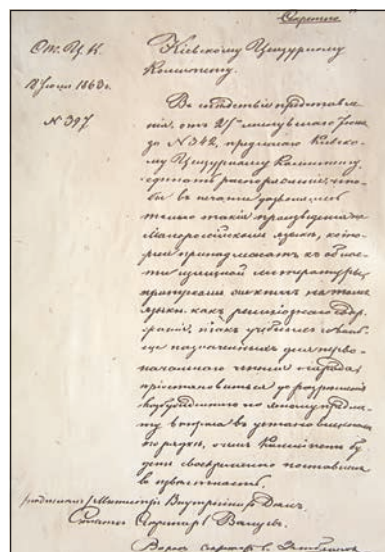 Секретно
От. Ц. К.
18 Іюля 1863 г.
№ 397
Кіевскому Цензурному
Комитету.
Въ слѣдствіе представле-
нія, отъ 27 минувшаго Іюня
за № 342, предлагаю Кіевско-
му Цензурному Комитету
сдѣлать распоряженіе, что-
бы въ печати дозволялись
только такія произведенія на
Малороссійскомъ языкѣ, кото-
рыя принадлежатъ къ облас-
ти изящной литературы;
языкѣ какъ религіознаго содер-
жанія, такъ учебныхъ и вооб-
ще назначенныхъ для перво-
начальнаго чтенія народа,
пріостановиться до разрѣшенія
ту вопроса въ установленномъ
порядкѣ, о чемъ Комитетъ бу-
детъ своевременно поставленъ
въ извѣстность.
/подписалъ/ Министръ Внутреннихъ Дѣлъ,
Статсъ Секретарь Валуевъ.
Секретарь